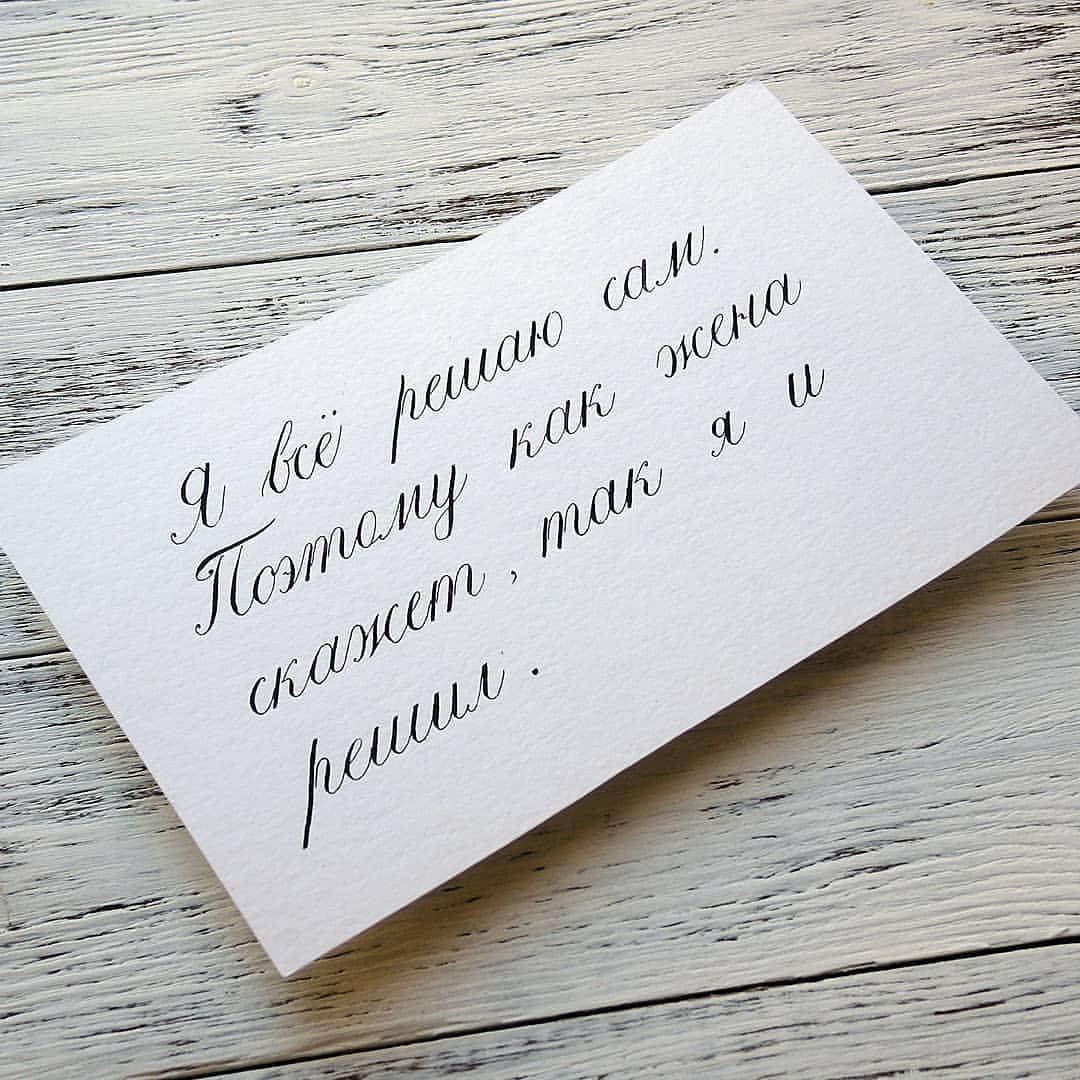 Я всё решаю сам.
Поэтому как жена
скажет, так я и
решил.